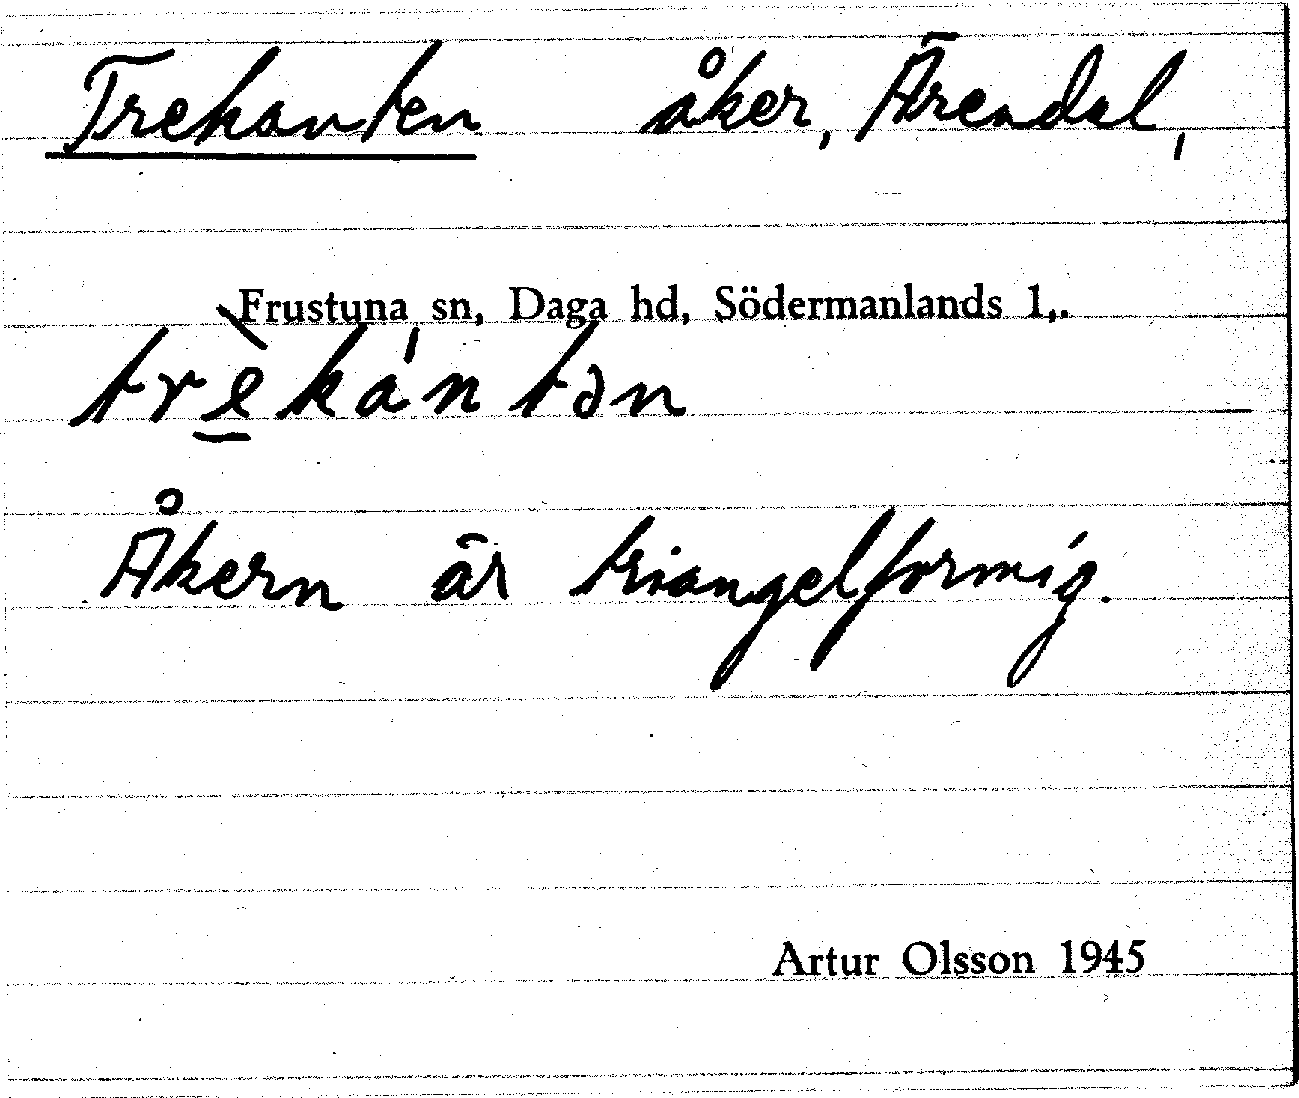 Trekanten åker, Ärendal,
Frustuna sn, Daga hd, Södermanlands l,.
trè̱ká̍ntən
Åkern är triangelformig.
Artur Olsson 1945